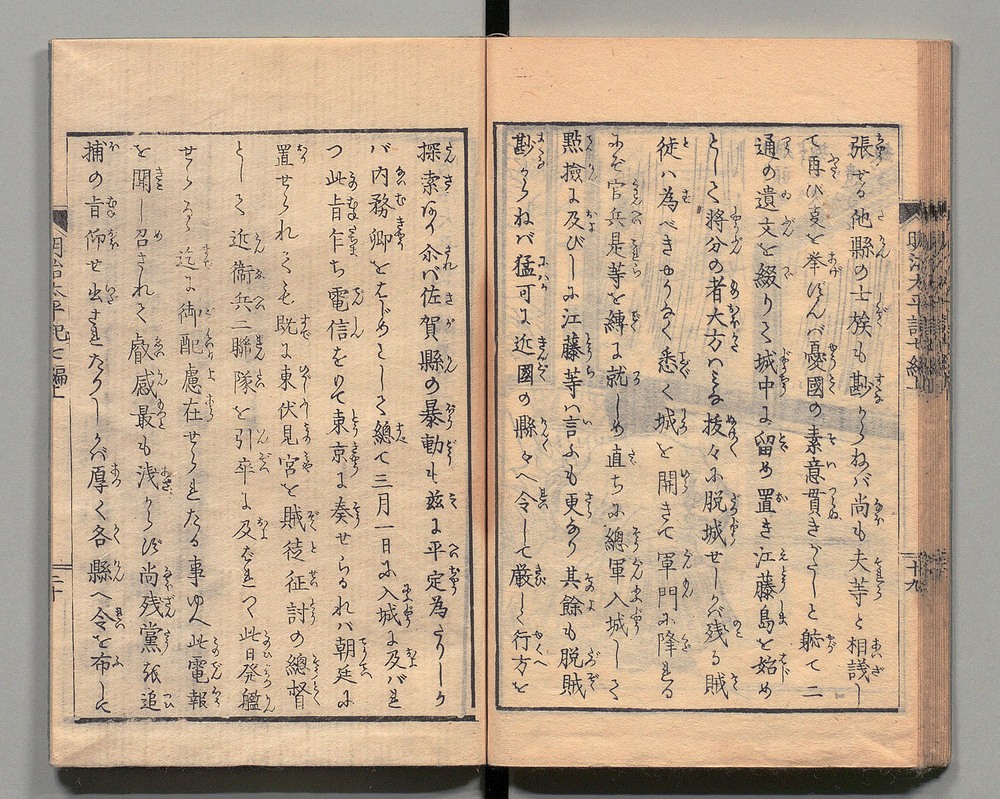 張せる他縣の士族も尠からねバ尚も夫等と相議し
て再び事を挙げずんバ憂國の素意貫きがたしと軈て二
通の遺文を綴りて城中に留め置き江藤島を始め
として將分の者大方ハミな抜々に脱城せしかバ残る賊
徒ハ為べきやうなく悉く城を開きて軍門に降れる
にぞ官兵是等を縛に就しめ直ちに總軍入城して
㸃撿に及びしに江藤等ハ言ふも更なり其餘も脱賊
尠からねバ猛可に近國の縣々へ令して嚴しく行方を
明治太平記七編上
十九
探索なり尒バ佐賀縣の暴動も茲に平定為たりしか
バ内務卿をはじめとして總て三月一日に入城に及バれ
つ此旨乍ち電信をもて東京に奏せらるれバ朝廷に
置せられても既に東伏見宮を賊徒征討の總督
として近衛兵二聯隊を引率に及ばれつ此日発艦
せらるゝ迄に御配慮在せられたる事ゆへ此電報
を聞し召されて叡感最も浅からず尚残黨張追
捕の旨仰せ出されたりしかバ厚く各縣へ令を布して
明治太平記七編上
二十